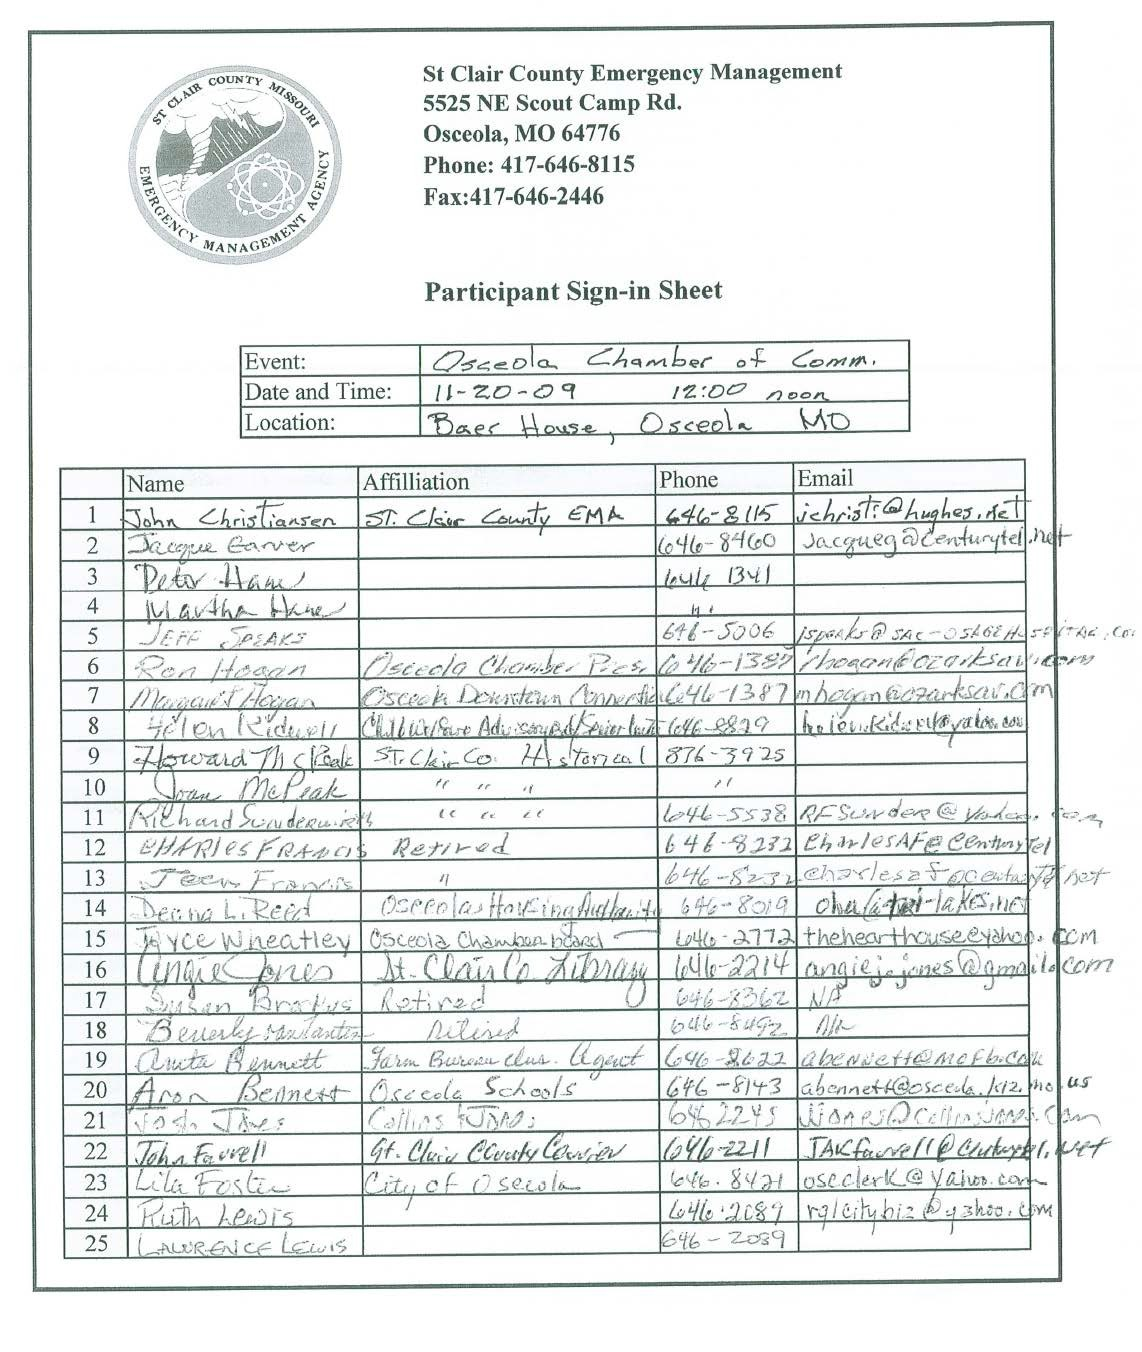 ST CLAIR COUNTY MISSOURI
EMERGENCY MANAGEMENT AGENCY
St Clair County Emergency Management
5525 NE Scout Camp Rd.
Osceola, MO 64776
Phone: 417-646-8115
Fax:417-646-2446
Participant Sign-in Sheet
Event: Osceola Chamber of Comm.
Date and Time: 11-20-09 12:00 noon
Location: Baer House, Osceola MO
Name Affilliation Phone Email
1 John Christiansen ST. Clair County EMA 646-8115 jchristi@hughes.net
2 Jacque Garver 646-8460 jacqueg@centurytel.net
3 Peter Hane 646 1341
4 Martha Hane " "
5 JEFF SPEAKS 646-5006 jspeaks@SAC-OSAGEHOSPITAL.co
6 Ron Hogan Osceola Chamber Pres. 646-1387 rhogan@ozarksav.com
7 Margaret Hogan Osceola Downtown 646-1387 mhogan@ozarksav.com
8 Helen Kidwell 646-8829
9 Howard McPeak ST. Clair Co. Historical 876-3925
10 Joan McPeak " " " "
11 Richard Sunderwirth " " " 646-5538 RFSunder@yahoo.com
12 CHARLES FRANCIS Retired 646-8232 CharlesAF@Centurytel
13 Jean Francis " 646-8232
14 Deana L. Reed Osceolas Housing Authority 646-8019 oha@tri-lakes.net
15 Joyce Wheatley Osceola Chamber board 646-2772 thehearthouse@yahoo.com
16 Angie Jones St. Clair Co Library 646-2214 angiejojones@gmail.com
17 Susan Brookus Retired 646-8362 NA
18 Beverly Retired 646-8492 N/A
19 Anita Bennett Farm Bureau Ins. Agent 646-2622 abennett@mofb.com
20 Aron Bennett Osceola Schools 646-8143 abennett@osceola.k12.mo.us
21 Josh Jones Collins & Jones 646 2245
22 John Farrell St. Clair County Courier 646-2211 JAKfarrell@Centurytel.net
23 Lila Foster City of Osceola 646-8421 osceclerk@yahoo.com
24 Ruth Lewis 646-2089 rglcitybiz@yahoo.com
25 LAWRENCE LEWIS 646-2089